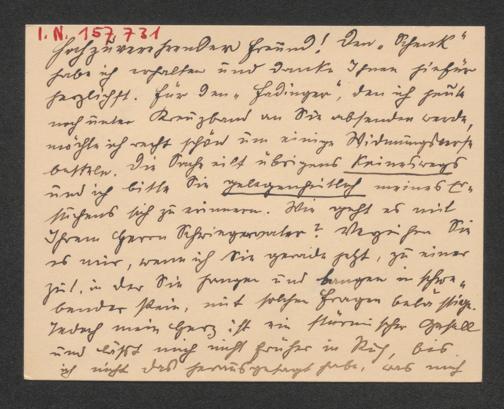 I. N. 157.731
Hochzuverehrender Freund! Den „Schenk“
habe ich erhalten und danke Ihnen hiefür
herzlichst. Für den „Fadinger“, den ich heute
noch unter Kreuzband an Sie absenden werde,
möchte ich recht schön um einige Widmungsverse
betteln. Die Sache eilt übrigens keineswegs
und ich bitte Sie gelegenheitlich meines Er-
suchens sich zu erinnern. Wie geht es mit
Ihrem Herrn Schwiegervater? Verzeihen Sie
es mir, wenn ich Sie gerade jetzt, zu einer
Zeit, in der Sie hangen und bangen in schwe-
bender Pein, mit solchen Fragen belästige.
Jedoch mein Herz ist ein stürmischer Gesell
und läßt mich nicht früher in Ruh, bis
ich nicht das herausgesagt habe, was mich